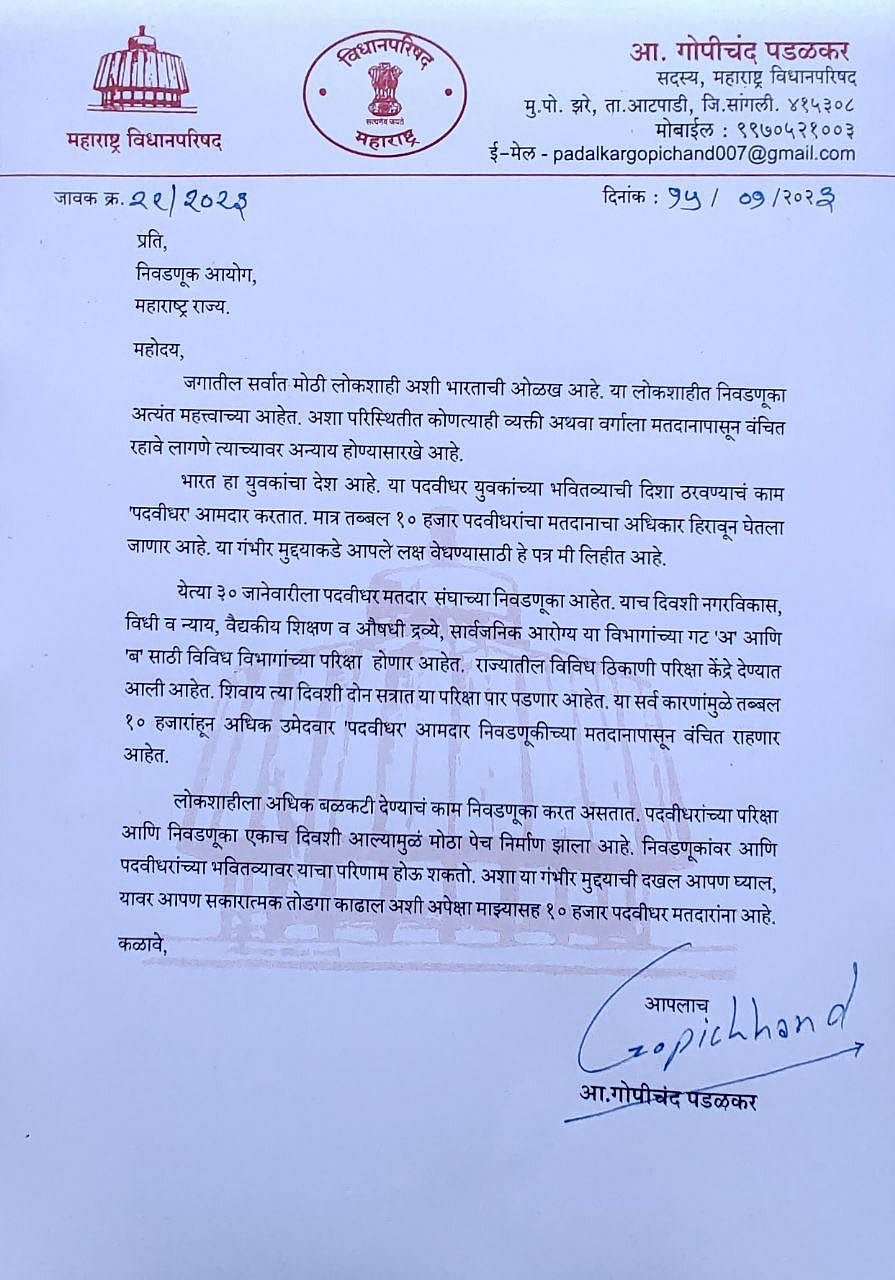 आ. गोपीचंद पडळकर
सदस्य, महाराष्ट्र विधानपरिषद
मु.पो. झरे, ता.आटपाडी, जि.सांगली. ४१५३०८
मोबाईल : ९९७०५२१००३
ई-मेल - padalkargopichand007@gmail.com
महाराष्ट्र विधानपरिषद
विधानपरिषद
सत्यमेव जयते
महाराष्ट्र
जावक क्र. २१/२०२३
दिनांक : १५ / ०१ /२०२३
प्रति,
निवडणूक आयोग,
महाराष्ट्र राज्य.
महोदय,
जगातील सर्वात मोठी लोकशाही अशी भारताची ओळख आहे. या लोकशाहीत निवडणूका
अत्यंत महत्त्वाच्या आहेत. अशा परिस्थितीत कोणत्याही व्यक्ती अथवा वर्गाला मतदानापासून वंचित
रहावे लागणे त्याच्यावर अन्याय होण्यासारखे आहे.
भारत हा युवकांचा देश आहे. या पदवीधर युवकांच्या भवितव्याची दिशा ठरवण्याचं काम
'पदवीधर' आमदार करतात. मात्र तब्बल १० हजार पदवीधरांचा मतदानाचा अधिकार हिरावून घेतला
जाणार आहे. या गंभीर मुद्द्याकडे आपले लक्ष वेधण्यासाठी हे पत्र मी लिहीत आहे.
येत्या ३० जानेवारीला पदवीधर मतदार संघाच्या निवडणूका आहेत. याच दिवशी नगरविकास,
विधी व न्याय, वैद्यकीय शिक्षण व औषधी द्रव्ये, सार्वजनिक आरोग्य या विभागांच्या गट 'अ' आणि
'ब' साठी विविध विभागांच्या परिक्षा होणार आहेत. राज्यातील विविध ठिकाणी परिक्षा केंद्रे देण्यात
आली आहेत. शिवाय त्या दिवशी दोन सत्रात या परिक्षा पार पडणार आहेत. या सर्व कारणांमुळे तब्बल
१० हजारांहून अधिक उमेदवार 'पदवीधर' आमदार निवडणूकीच्या मतदानापासून वंचित राहणार
आहेत.
लोकशाहीला अधिक बळकटी देण्याचं काम निवडणूका करत असतात. पदवीधरांच्या परिक्षा
आणि निवडणूका एकाच दिवशी आल्यामुळं मोठा पेच निर्माण झाला आहे. निवडणूकांवर आणि
पदवीधरांच्या भवितव्यावर याचा परिणाम होऊ शकतो. अशा या गंभीर मुद्द्याची दखल आपण घ्याल,
यावर आपण सकारात्मक तोडगा काढाल अशी अपेक्षा माझ्यासह १० हजार पदवीधर मतदारांना आहे.
कळावे,
आपलाच
Gopichhand
आ.गोपीचंद पडळकर